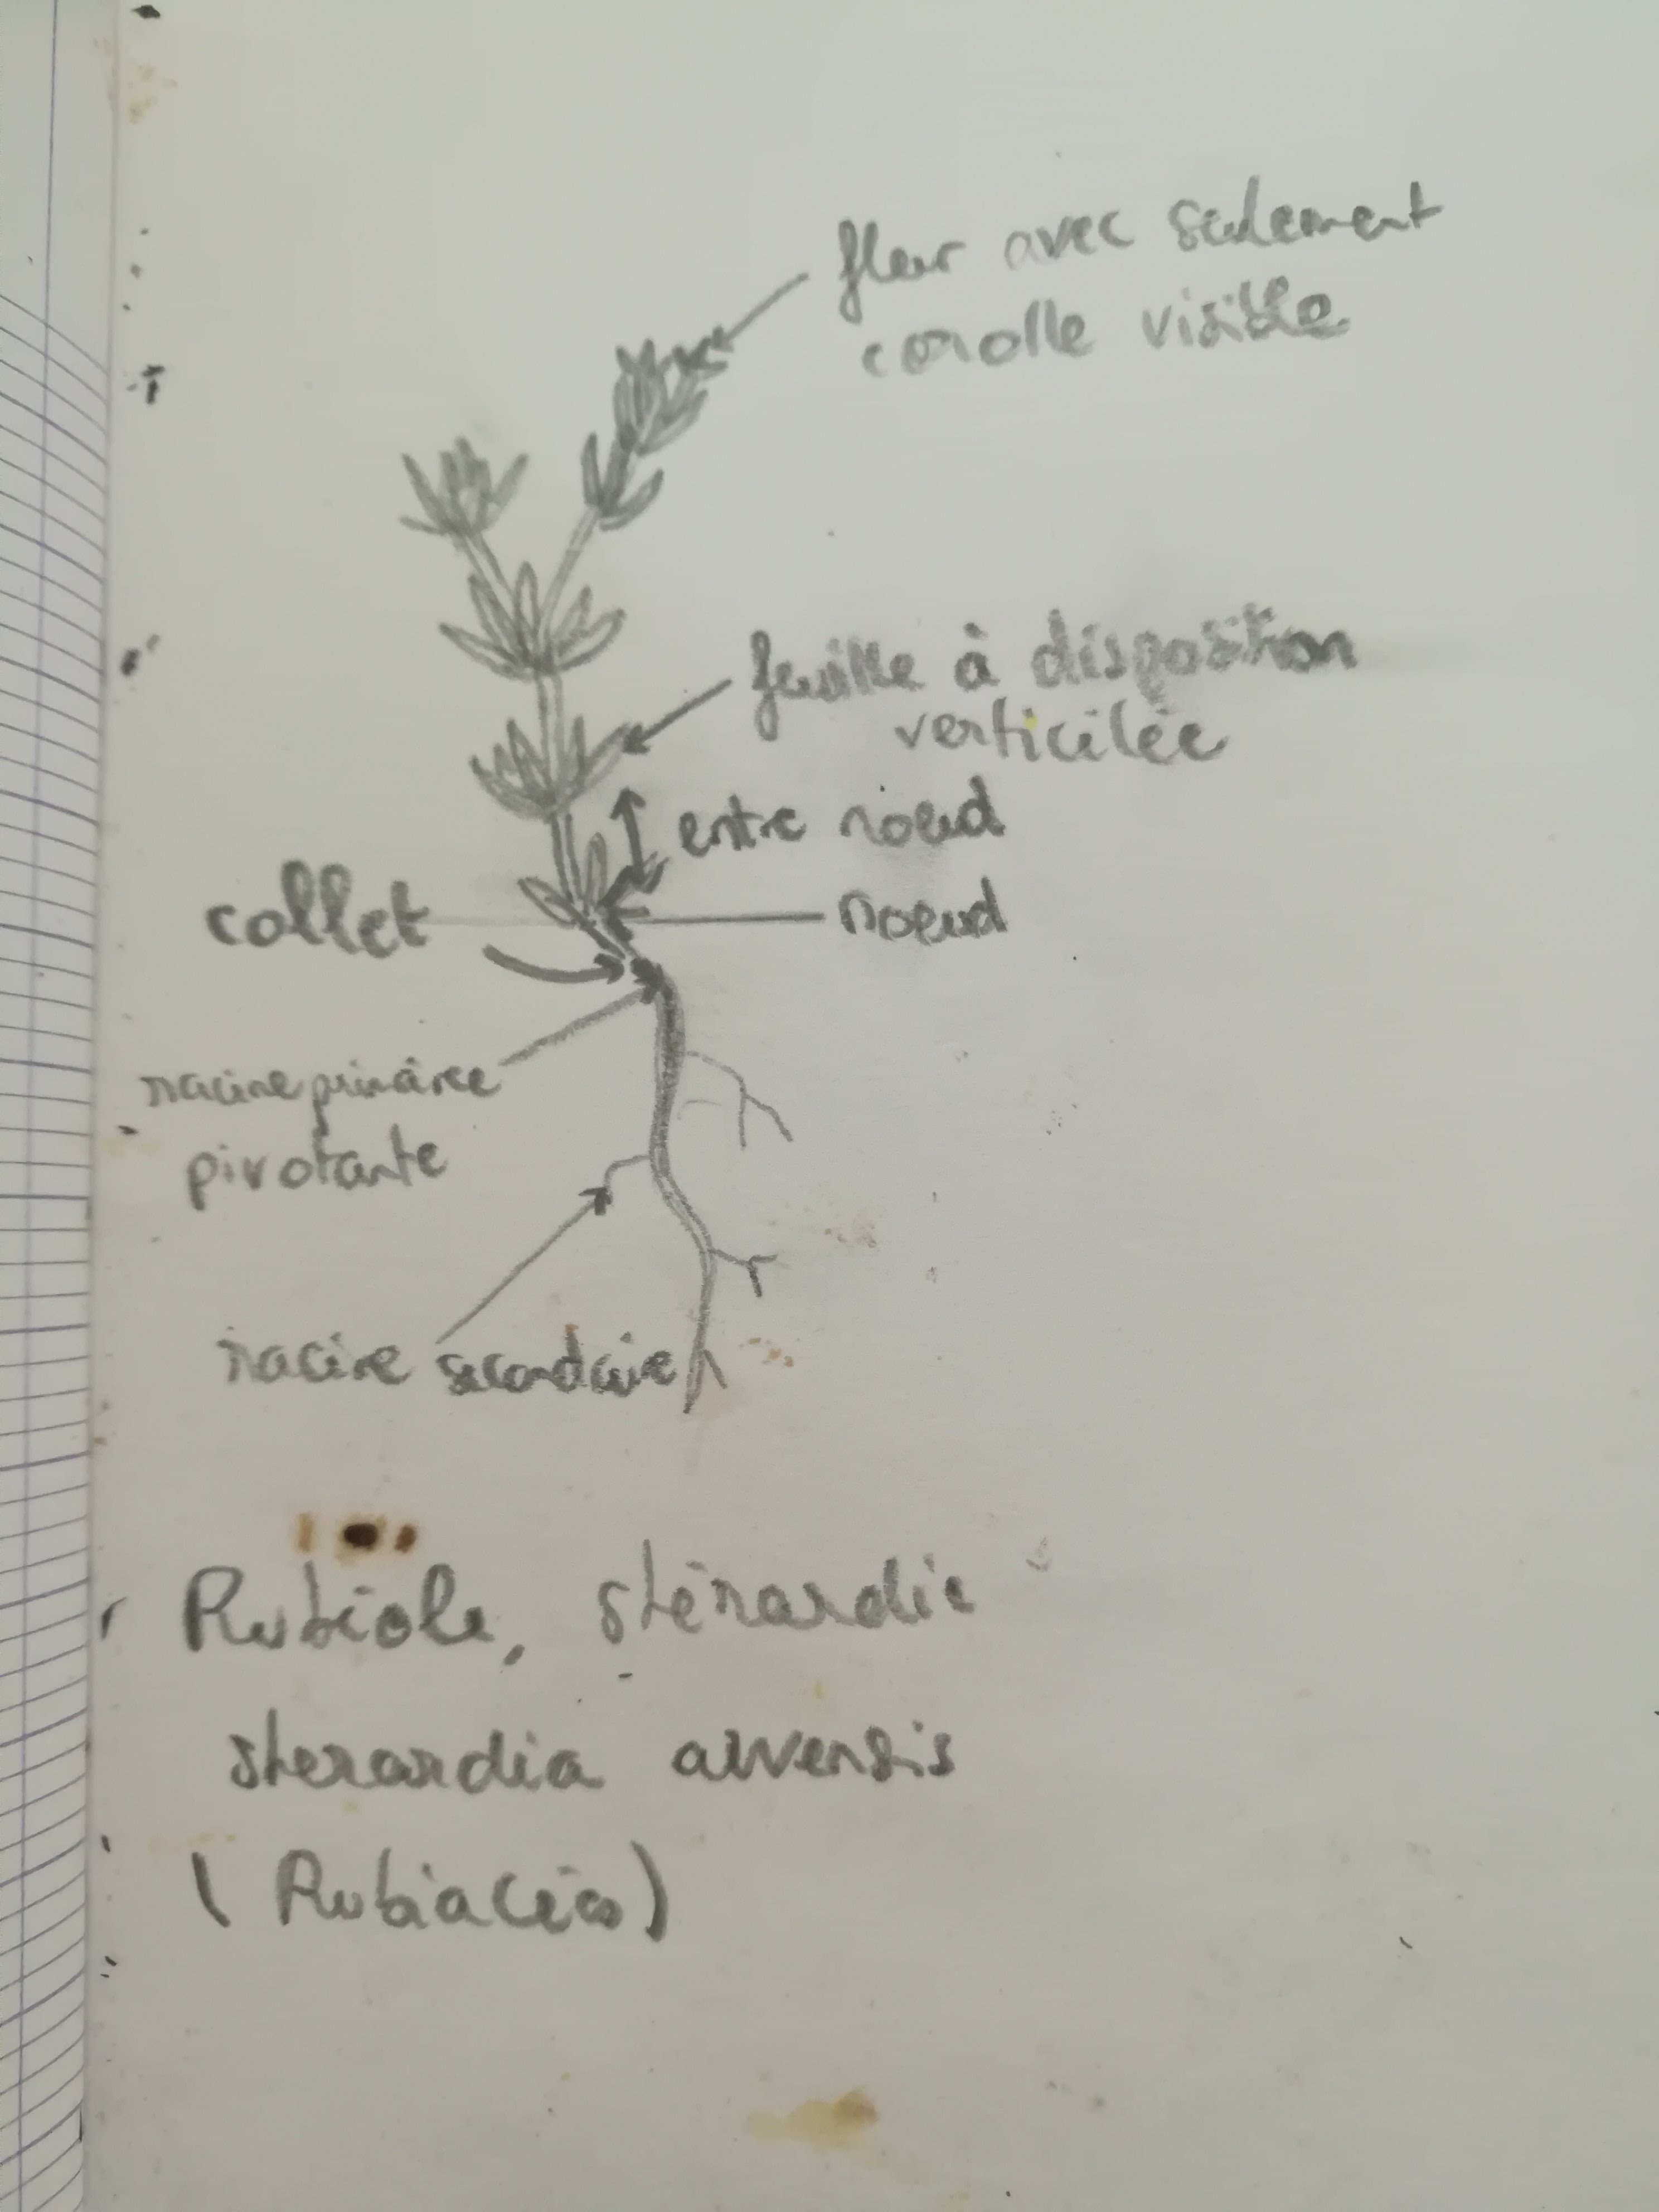 fleur avec seulement
corolle visible
feuille à disposition
verticilée
entre noeud
collet
noeud
racine primaire
pivotante
racine secondaire
Rubiole, shérardie
sherardia arvensis
(Rubiacées)